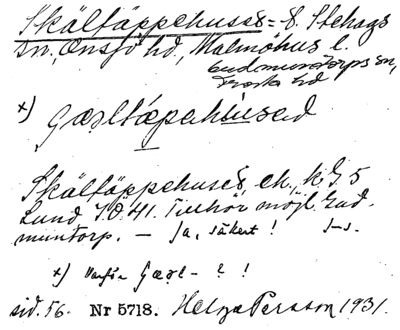 Skältäppehuset = Ö. Stehags
sn., Onsjö hd, Malmöhus l.
Gudmuntorps sn,
Frosta hd
x)
Skältäppehuset, ch., k. G 5
Lund I.Ö.41. Tillhör möjl. Gud-
muntorp. – Ja, säkert!
x) Varför – ? !
sid. 56. Nr 5718. Helge Persson 1931.